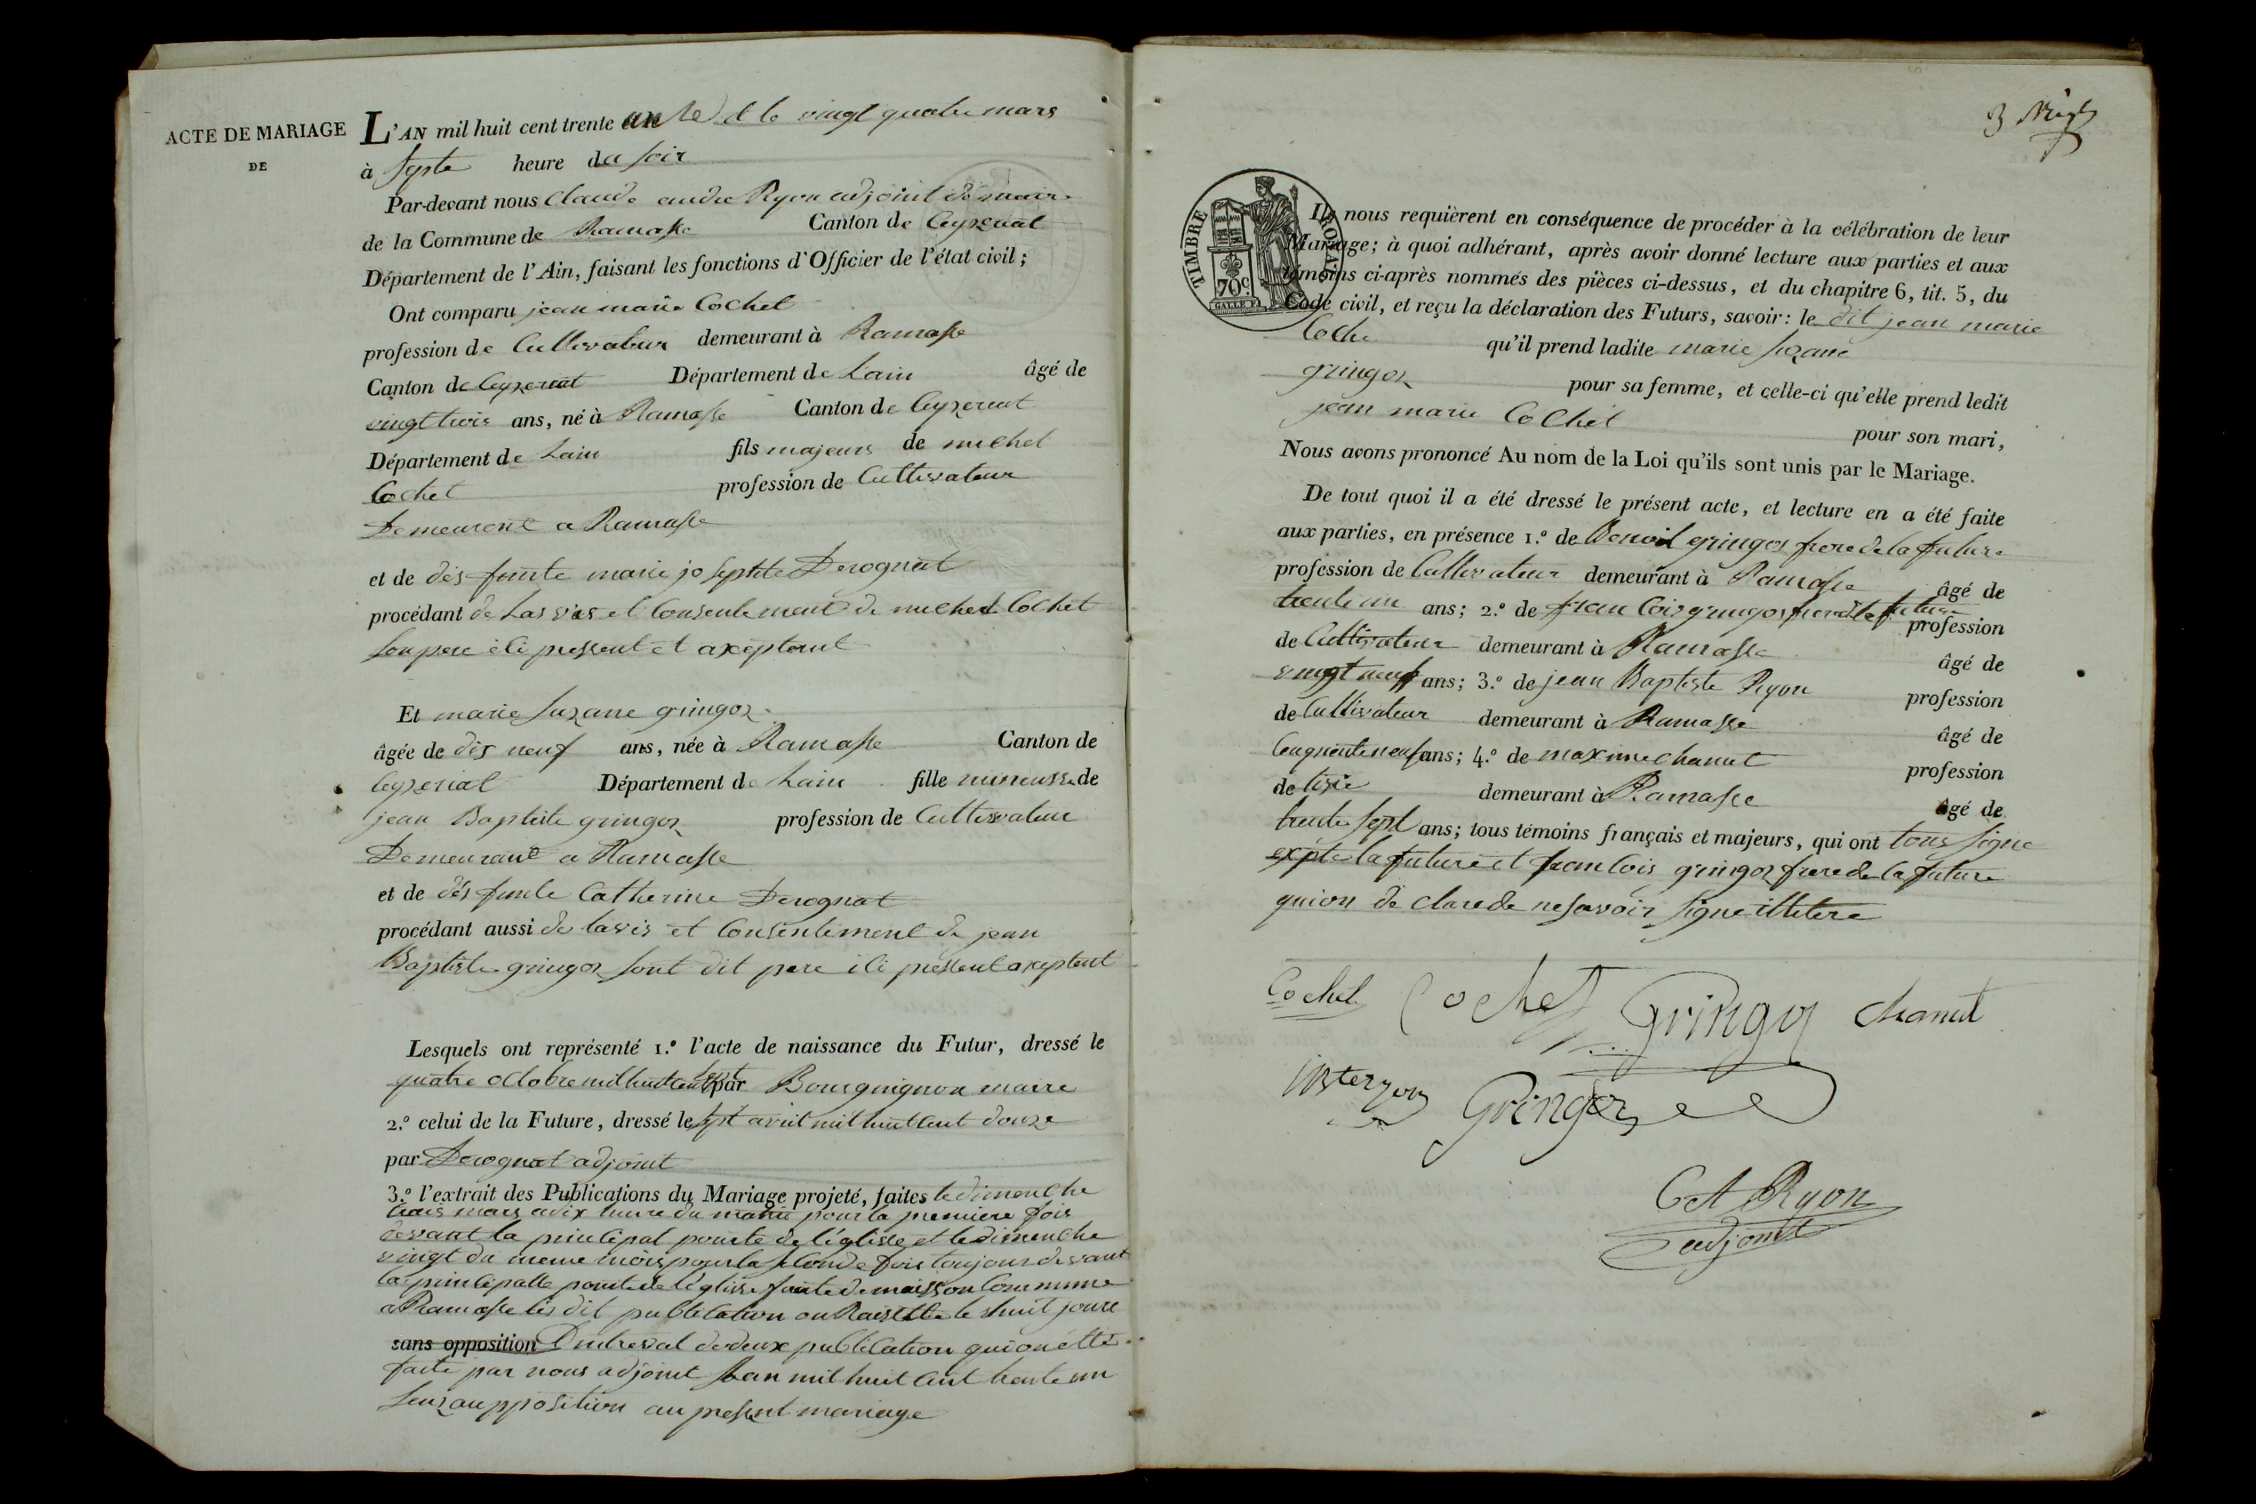 ACTE DE MARIAGE
DE
L'AN mil huit cent trente un et le vingt quatre mars
à septe heure du soir
Par-devant nous Claude andre Ryon adjoint de maire
de la Commune de Ramasse Canton de Ceyzeriat
Département de l'Ain, faisant les fonctions d'Officier de l'état civil;
Ont comparu jean marie Cochet
profession de Cultivateur demeurant à Ramasse
Canton de Ceyzeriat Département de Lain âgé de
vingt trois ans, né à Ramasse Canton de Ceyzeriat
Département de Lain fils majeurs de michel
Cochet profession de Cultivateur
Demeurent a Ramasse
et de desfunte marie josephte Derognat
procédant de Lasvis et Consentement de michel Cochet
son pere ici pressent et axeptent
Et marie suzane gringoz
âgée de dix neuf ans, née à Ramasse Canton de
Ceyzeriat Département de Lain fille mineusse de
jean Baptiste gringoz profession de Cultivateur
Demeurant a Ramasse
et de desfunte Catherine Derognat
procédant aussi de lavis et Consentement de jean
Baptiste gringoz sont dit pere ici pressent axeptent
Lesquels ont représenté 1.º l'acte de naissance du Futur, dressé le
quatre octobre mil huit cent sept par Bourguignon maire
2.º celui de la Future, dressé le sept avril mil huit cent douze
par Derognat adjoint
3.º l'extrait des Publications du Mariage projeté, faites le dimenche
trais mars a dix heure du matin pour la premiere fois
devant la principal pourte de l'églisse et le dimenche
vingt du meme mois pour la seconde fois toujour devant
la principalle pourte de l'églisse faute de maisson Commune
a Ramasse les dit publication on le huit joure
sans opposition D'intreval de deux publication qui on étté
faite par nous adjoint Lan mil huit cent trente un
sens aupposition au present mariage
3 Vingt
TIMBRE ROYAL
70c
GALLE F.
Ils nous requièrent en conséquence de procéder à la célébration de leur
Mariage; à quoi adhérant, après avoir donné lecture aux parties et aux
témoins ci-après nommés des pièces ci-dessus, et du chapitre 6, tit. 5, du
Code civil, et reçu la déclaration des Futurs, savoir: le dit jean marie
Coche qu'il prend ladite marie suzane
gringoz pour sa femme, et celle-ci qu'elle prend ledit
jean marie Cochet pour son mari,
Nous avons prononcé Au nom de la Loi qu'ils sont unis par le Mariage.
De tout quoi il a été dressé le présent acte, et lecture en a été faite
aux parties, en présence 1.º de Benoit gringoz frere de la future
profession de Cultivateur demeurant à Ramasse âgé de
trente un ans; 2.º de francois gringoz frere de la future profession
de Cultivateur demeurant à Ramasse âgé de
vingt neuf ans; 3.º de jean Baptiste Ryon profession
de Cultivateur demeurant à Ramasse âgé de
Cenquente neuf ans; 4.º de maxime chanut profession
de demeurant à Ramasse âgé de
trente sept ans; tous témoins français et majeurs, qui ont tous signe
expte la future et francois gringoz frere de la future
qui on de clare de ne savoir signe illetere
Cochet Cochet Gringoz chanut
Gringoz
C A Ryon
adjoint